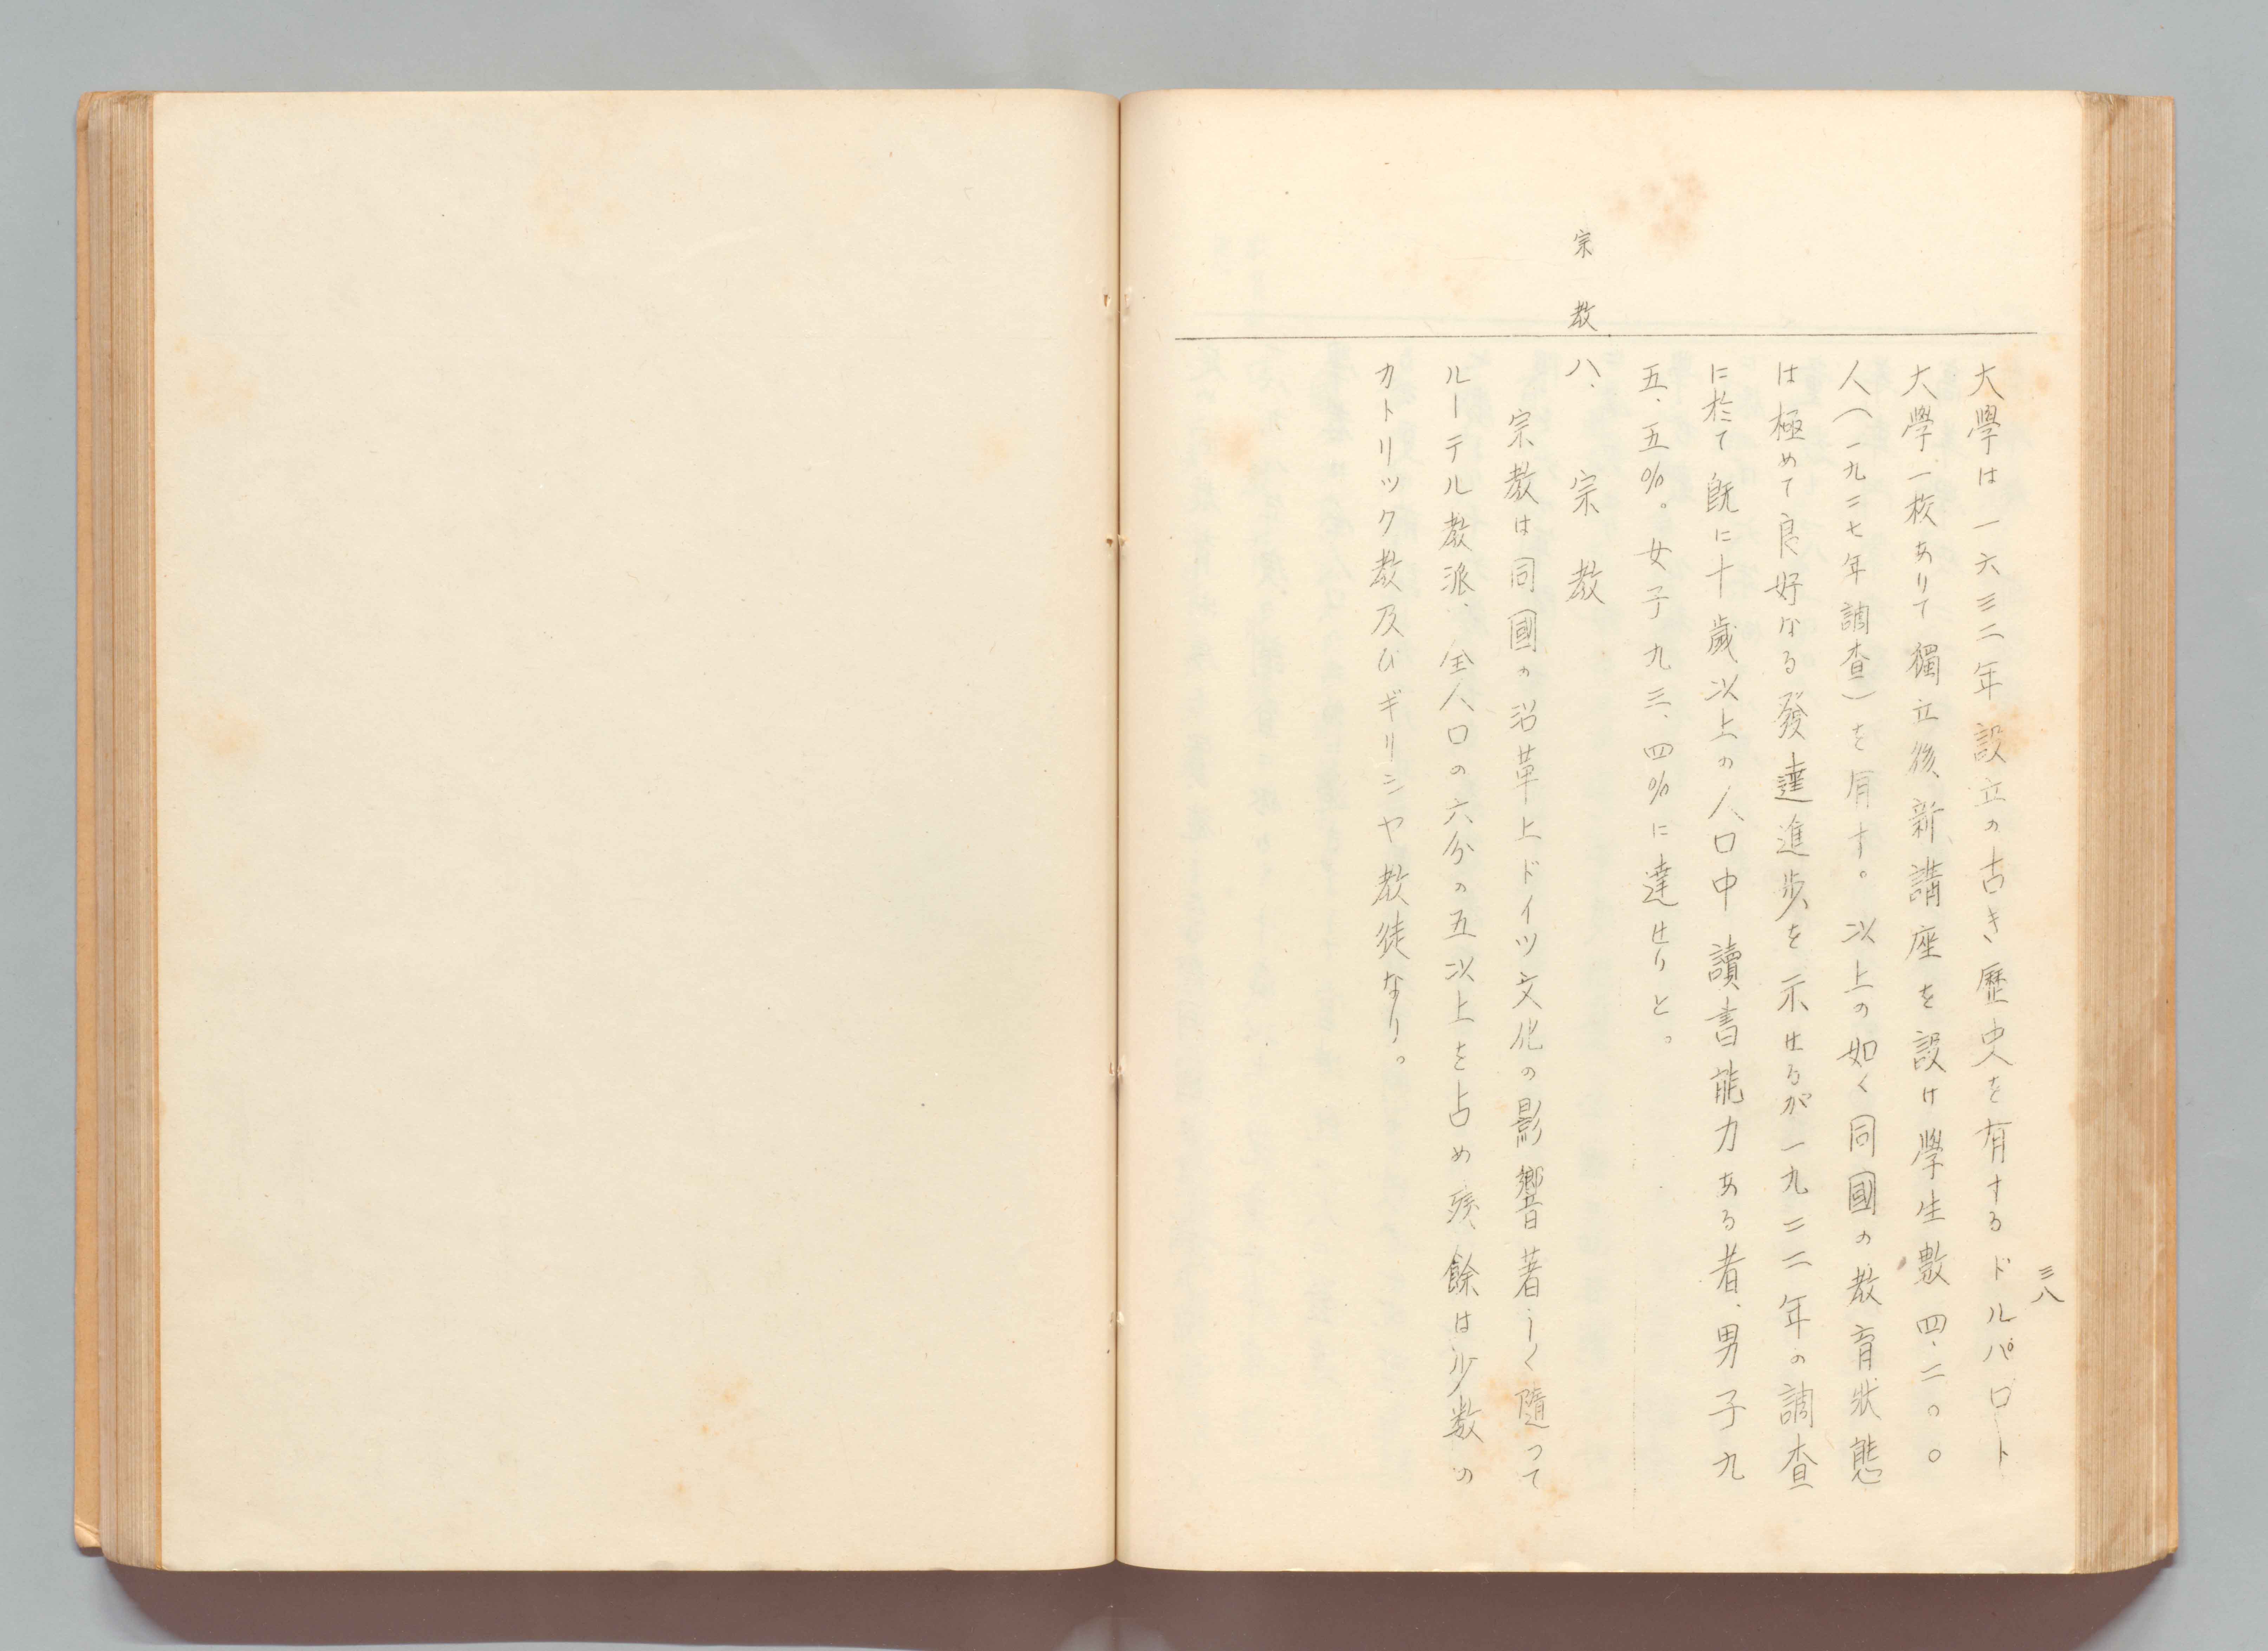 三八
大學は一六三二年設立の古き歴史を有するドルパロト
大學一校ありて獨立後、新講座を設け學生數四、二〇〇
人（一九二七年調査）を有す。以上の如く同國の教育狀態
は極めて良好なる發達進歩を示せるが一九二二年の調査
に於て既に十歲以上の人口中讀書能力ある者、男子九
五、五%。女子九三、四%に達せりと。
宗教
八、宗教
宗教は同國の沿革上ドイツ文化の影響著しく隨って
ルーテル教派、全人口の六分の五以上を占め殘餘は少数の
カトリック教及びギリシヤ教徒なり。